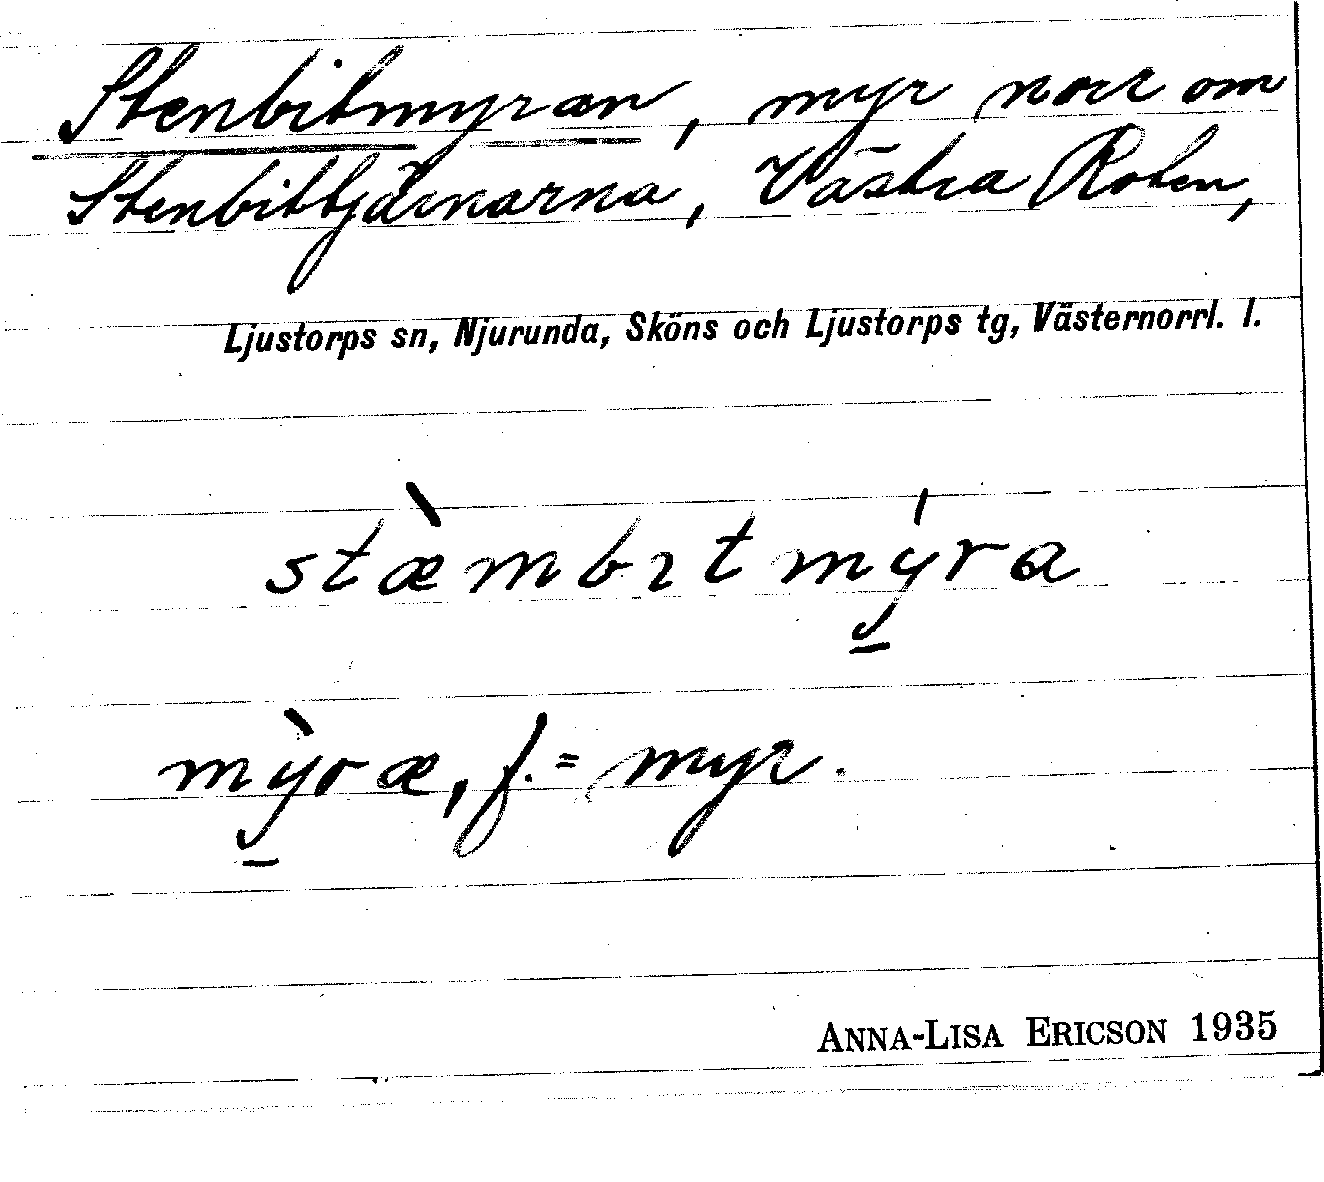 Stenbitmyran, myr norr om
Stenbittjärnarna, Västra Roten,
Ljustorps sn, Njurunda, Sköns och Ljustorps tg, Västernorrl. l.
stæ̀mbıtmý̠ra
mỳ̠ræ, f. = myr.
ANNA-LISA ERICSON 1935